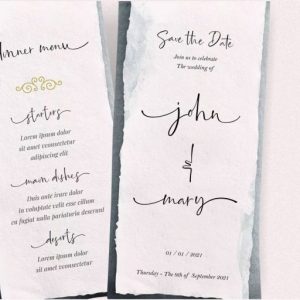 dinner menu
starters
Lorem ipsum dolor
sit amet consectetur
adipiscing elit
main dishes
Lorem ipsum dolor
sit amet consectetur
cagiue nullam
parturient dezerunt
deserts
Lorem ipsum dolor
sit amet consectetur
Save the Date
Join us to celebrate
The wedding of
john
&
mary
01 / 01 / 2021
Thursday - The 9th of September 2021